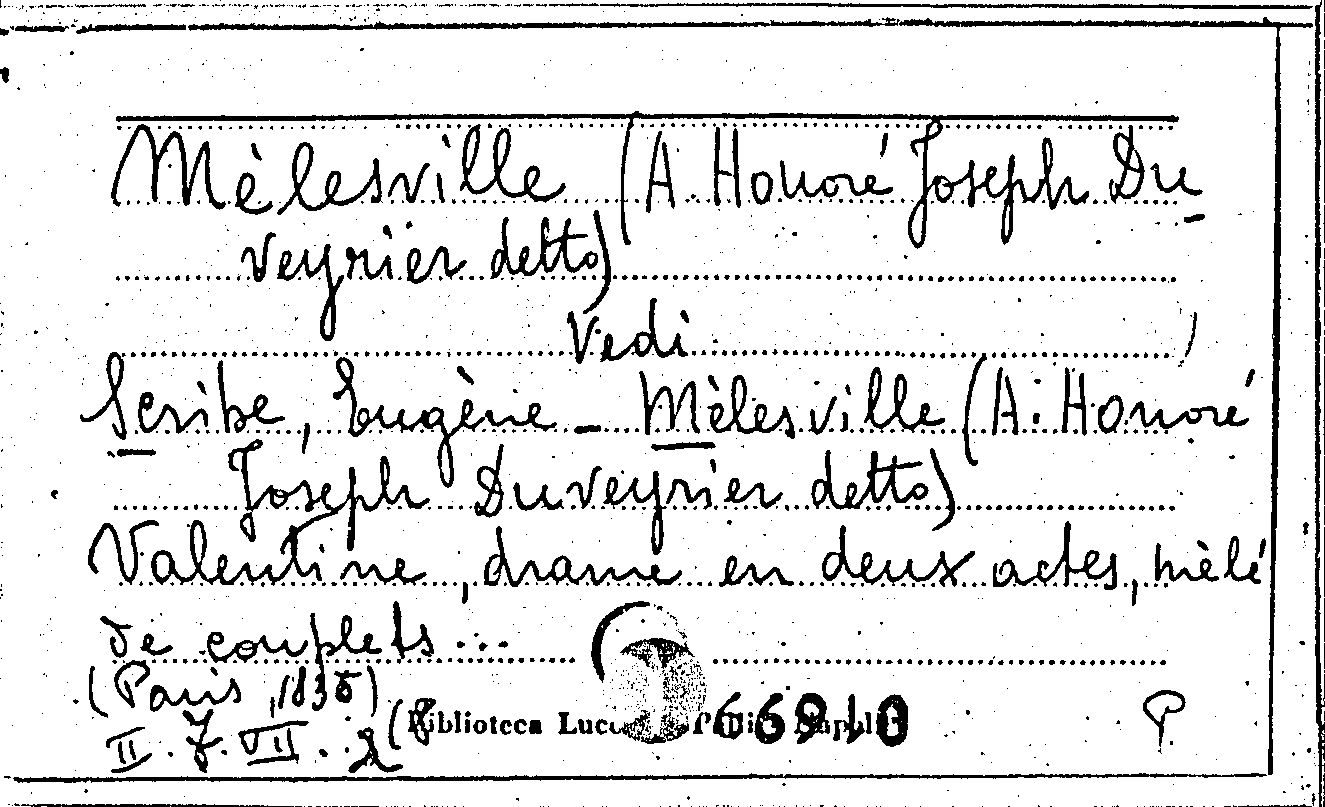 Mèlesville (A. Honoré Joseph Du
veyrier detto)
Vedi
Scribe, Eugène - Mèlesville (A. Honoré
Joseph Duveyrier detto)
Valentine, drame en deux actes, mèlé
de couplets...
(Paris, 1836)
II. 7. VII. 2 (8
Biblioteca Lucc
66910
P